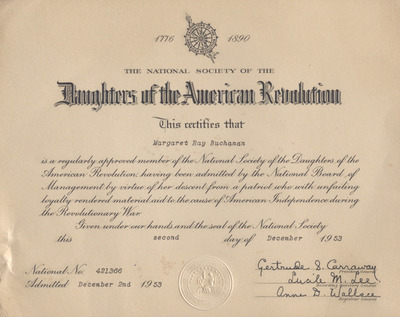 1776 1890
THE NATIONAL SOCIETY OF THE
Daughters of the American Revolution
This certifies that
Margaret Ray Buchanan
is a regularly approved member of the National Society of the Daughters of the
American Revolution; having been admitted by the National Board of
Management by virtue of her descent from a patriot who with unfailing
loyalty rendered material aid to the cause of American Independence during
the Revolutionary War.
Given under our hands and the seal of the National Society
this second day of December 1953
National No. 421366
Admitted December 2nd 1953
Gertrude S. Carraway
President General
Lucile M. Lee
Anne D. Wallace
Registrar General